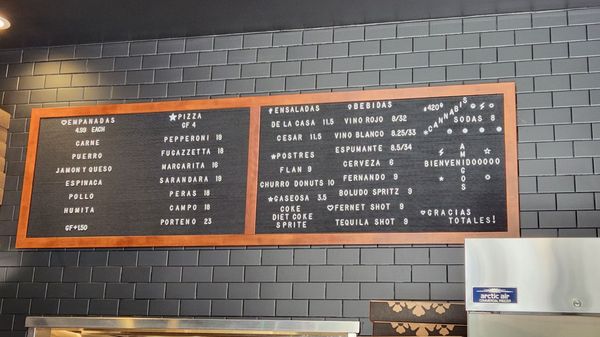 EMPANADAS
4.99 EACH
CARNE
PUERRO
JAMON Y QUESO
ESPINACA
POLLO
HUMITA
GF +1.50
PIZZA
GF 4
PEPPERONI 19
FUGAZZETTA 18
MARGARITA 16
SARANDARA 19
PERAS 18
CAMPO 18
PORTENO 23
ENSALADAS
DE LA CASA 11.5
CESAR 11.5
POSTRES
FLAN 9
CHURRO DONUTS 10
GASEOSA 3.5
COKE
DIET COKE
SPRITE
BEBIDAS
VINO ROJO 8/32
VINO BLANCO 8.25/33
ESPUMANTE 8.5/34
CERVEZA 6
FERNANDO 9
BOLUDO SPRITZ 9
FERNET SHOT 9
TEQUILA SHOT 9
*420*
CANNABIS
SODAS 8
AMIGOS
BIENVENIDOOOOO
GRACIAS
TOTALES!
ARCTIC AIR